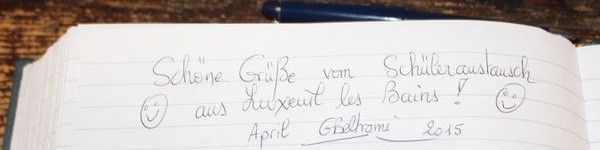 Schöne Grüße vom Schüleraustausch
aus Luxeuil les Bains !
April GBeltrami 2015